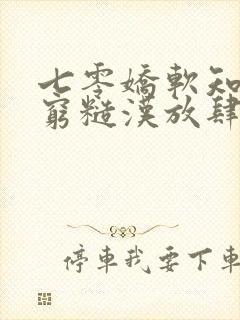 七零嬌軟知
窮糙漢放肆
停車我要下車